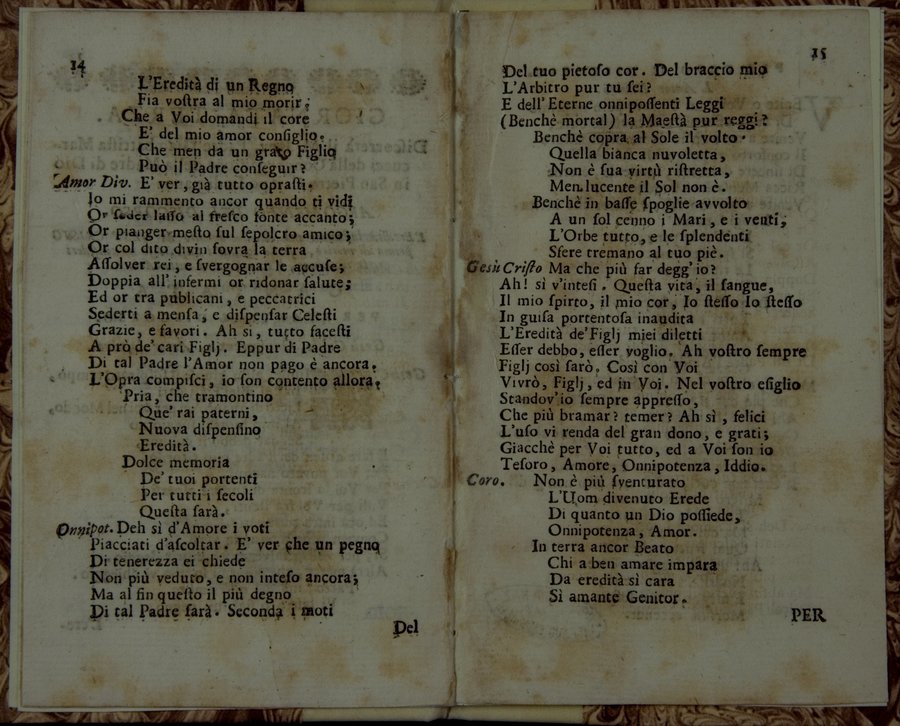 14
L'Eredità di un Regno
Fia voſtra al mio morir;
Che a Voi domandi il core
E' del mio amor conſiglio.
Che men da un grato Figlio
Può il Padre conſeguir?
Amor Div. E' ver, già tutto opraſti.
Io mi rammento ancor quando ti vidi
Or ſeder laſſo al freſco fonte accanto;
Or pianger meſto ſul ſepolcro amico;
Or col dito divin ſovra la terra
Aſſolver rei, e ſvergognar le accuſe;
Doppia all' infermi or ridonar ſalute;
Ed or tra publicani, e peccatrici
Sederti a menſa, e diſpenſar Celeſti
Grazie, e favori. Ah sì, tutto faceſti
A prò de' cari Figlj. Eppur di Padre
Di tal Padre l'Amor non pago è ancora.
L'Opra compiſci, io ſon contento allora.
Pria, che tramontino
Que' rai paterni,
Nuova diſpenſino
Eredità.
Dolce memoria
De' tuoi portenti
Per tutti i ſecoli
Queſta ſarà.
Onnipot. Deh sì d'Amore i voti
Piacciati d'aſcoltar. E' ver che un pegno
Di tenerezza ei chiede
Non più veduto, e non inteſo ancora;
Ma al fin queſto il più degno
Di tal Padre ſarà. Seconda i moti
Del
15
Del tuo pietoſo cor. Del braccio mio
L'Arbitro pur tu ſei?
E dell' Eterne onnipoſſenti Leggi
(Benchè mortal) la Maeſtà pur reggi?
Benchè copra al Sole il volto
Quella bianca nuvoletta,
Non è ſua virtù riſtretta,
Men lucente il Sol non è.
Benchè in baſſe ſpoglie avvolto
A un ſol cenno i Mari, e i venti,
L'Orbe tutto, e le ſplendenti
Sfere tremano al tuo piè.
Gesù Criſto Ma che più far degg' io?
Ah! sì v'inteſi. Queſta vita, il ſangue,
Il mio ſpirto, il mio cor, Io ſteſſo Io ſteſſo
In guiſa portentoſa inaudita
L'Eredità de' Figlj miei diletti
Eſſer debbo, eſſer voglio. Ah voſtro ſempre
Figlj così ſarò. Così con Voi
Vivrò, Figlj, ed in Voi. Nel voſtro eſiglio
Standov' io ſempre appreſſo,
Che più bramar? temer? Ah sì, felici
L'uſo vi renda del gran dono, e grati;
Giacchè per Voi tutto, ed a Voi ſon io
Teſoro, Amore, Onnipotenza, Iddio.
Coro. Non è più ſventurato
L'Uom divenuto Erede
Di quanto un Dio poſſiede,
Onnipotenza, Amor.
In terra ancor Beato
Chi a ben amare impara
Da eredità sì cara
Sì amante Genitor.
PER